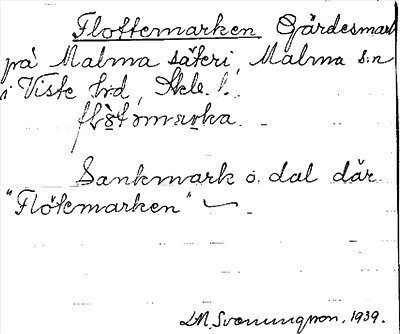 Flottemarken Gärdesmark
på Malma säteri, Malma s:n
i Viste hd, Skbl. l.

Sankmark o. dal där
"Flötemarken"
D.M. Svenningson. 1939.